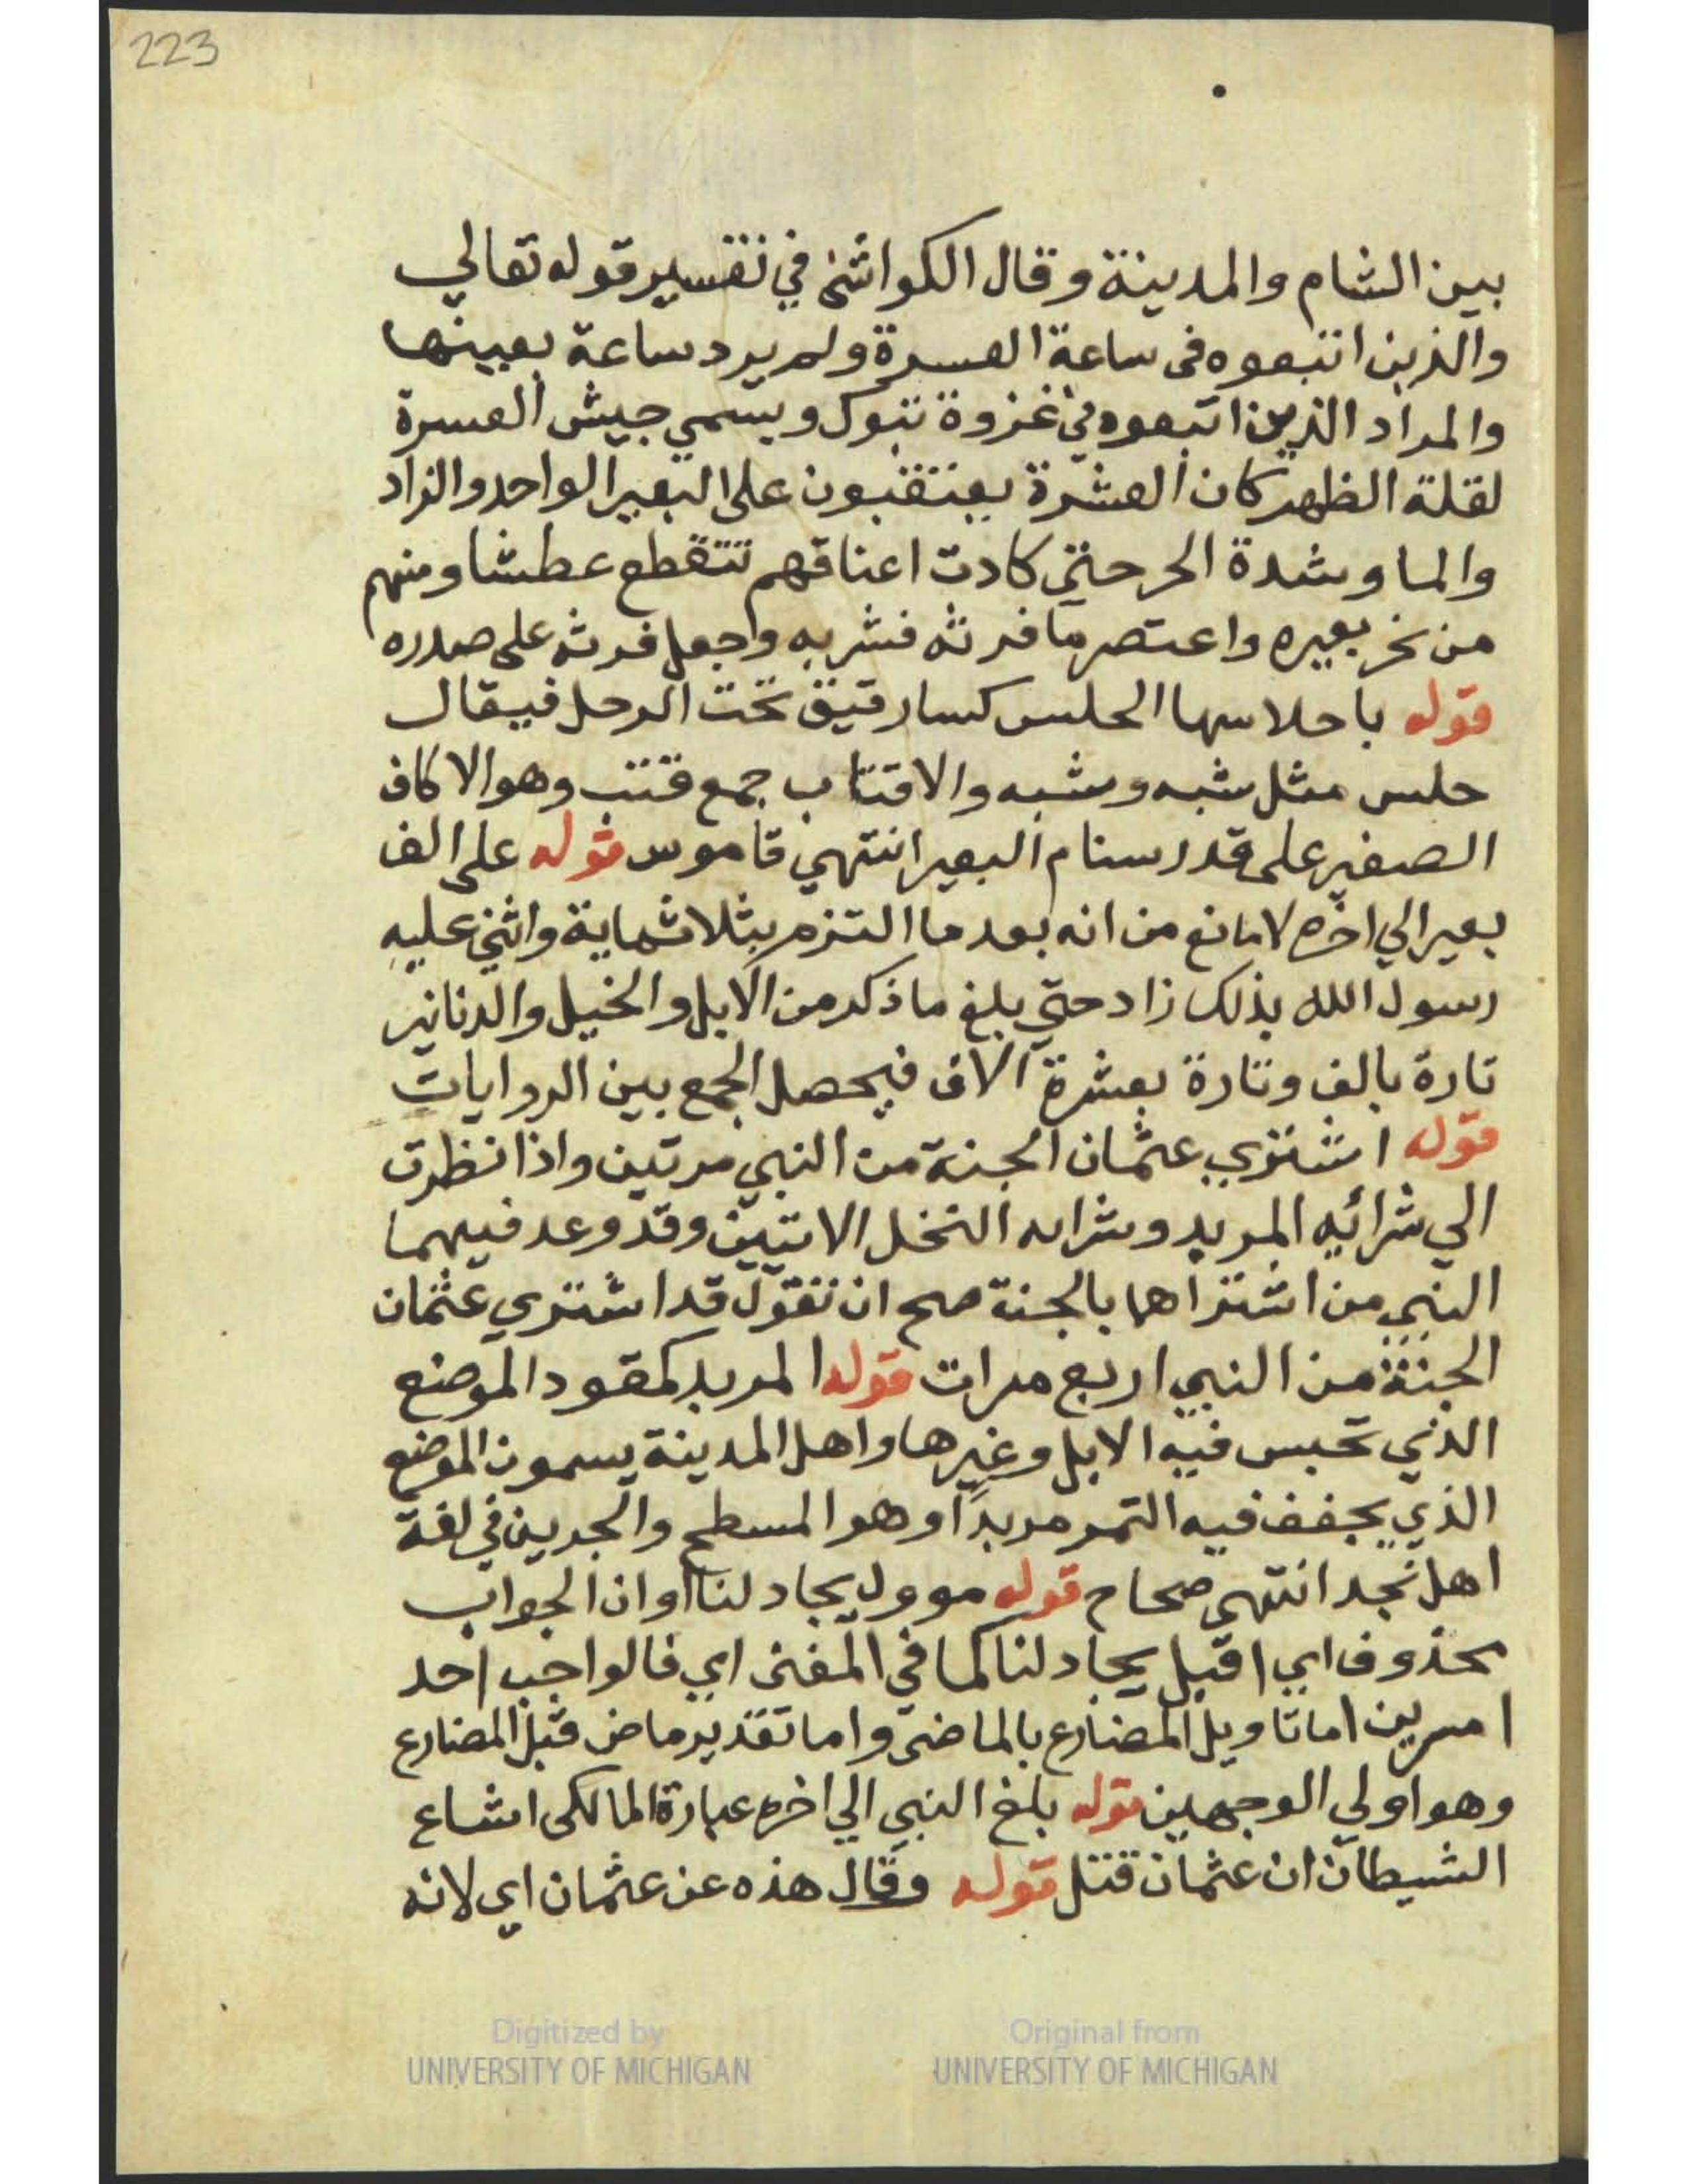 223
بين الشام والمدينة وقال الكواشى في تفسير قوله تعالي
والذين اتبعوه فى ساعة العسرة ولم يرد ساعة بعينها
والمراد الذين اتبعوه في غزوة تبوك ويسمي جيش العسرة
لقلة الظهر كان العشرة يعتقبون على البعير الواحد والزاد
والما وشدة الحر حتي كادت اعناقهم تتقطع عطشا ومنهم
من نحر بعيره واعتصر ما فرثه فشربه وجعل فرثه على صدره
قوله باحلاسها الحلس كسا رقيق تحت الرحل فيقال
حلس مثل شبه وشبه والاقتاب جمع قتب وهو الاكاف
الصغير على قدر سنام البعير انتهي قاموس قوله على الف
بعير الي اخره لا مانع من انه بعد ما التزم بثلاثماية واثني عليه
رسول الله بذلك زاد حتي بلغ ما ذكر من الابل والخيل والدنانير
تارة بالف وتارة بعشرة الاف فيحصل الجمع بين الروايات
قوله اشتري عثمان الجنة من النبي مرتين واذا نظرت
الي شرائيه المربد وشرايه النخل الاتيين وقد وعد فيهما
النبي من اشتراهما بالجنة صح ان تقول قد اشتري عثمان
الجنة من النبي اربع مرات قوله المربد كمقود الموضع
الذي تحبس فيه الابل وغيرها واهل المدينة يسمون الموضع
الذي يجفف فيه التمر مربدا وهو المسطح والجرين في لغة
اهل نجد انتهى صحاح قوله موول يجادلنا اوان الجواب
محذوف اي اقبل يجادلنا كما في المغنى اي فالواجب احد
امرين اما تاويل المضارع بالماضى واما تقدير ماض قبل المضارع
وهو اولي الوجهين قوله بلغ النبي الي اخره عبارة المالكى اشاع
الشيطان ان عثمان قتل قوله وقال هذه عن عثمان اي لانه
Digitized by
UNIVERSITY OF MICHIGAN
Original from
UNIVERSITY OF MICHIGAN